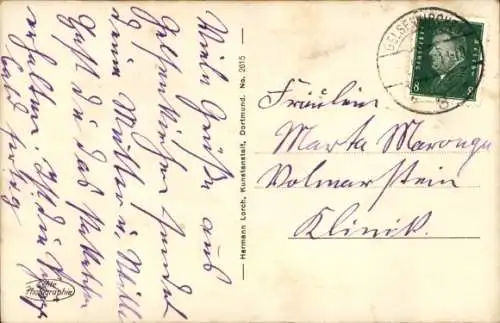 Viele Grüße aus
Gelsenkirchen sendet
deine Mutter u.
Hast du das
erhalten. Ist die
bald fertig
Echte
Photographie
Hermann Lorch, Kunstanstalt, Dortmund. No. 2615
GELSENKIRCHEN
8 8
Fräulein
Marta
Volmarstein
Klinik.